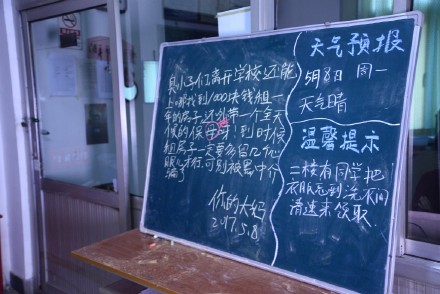 臭小子们离开学校还能
上哪找到1000块钱租一
年的房子还外带一个全天
候的保母呀！到时候
租房子一定要多留几个
眼儿才行，可别被黑中介
骗了
你的大妈
2017.5.8
天气预报
5月8日 周一
天气晴
温馨提示
二楼有同学把
衣服忘到洗衣间
请速来领取